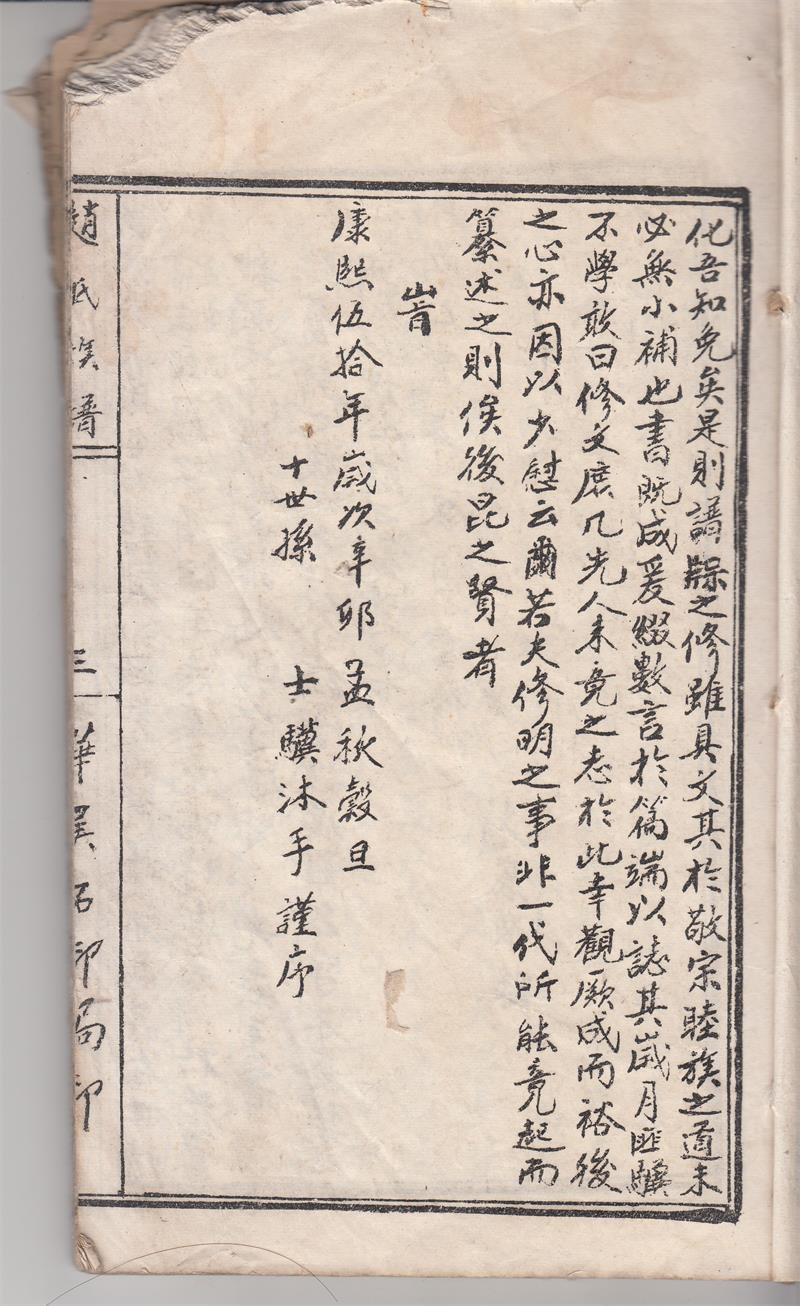 化吾知免矣是則譜牒之修雖具文其於敬宗睦族之道未
必無小補也書既成爰綴數言於篇端以誌其歲月匪驥
不學敢曰修文庶几先人未竟之志於此幸觀厥成而裕後
之心亦因以少慰云爾若夫修明之事非一代所能竟起而
纂述之則俟後昆之賢者
旹
康熙伍拾年歲次辛卯孟秋穀旦
十世孫 士驥沐手謹序
趙氏族譜 三 華美石印局印